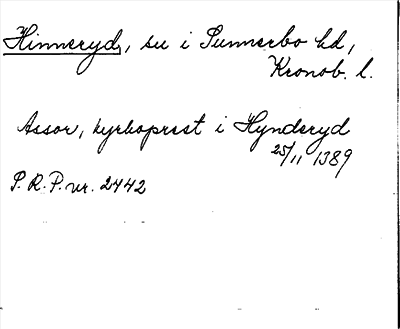 Hinneryd, su i Sunnerbo hd,
Kronob. l.
Assor, kyrkoprest i Hynderyd
25/11 1389
S.R.P. nr. 2442